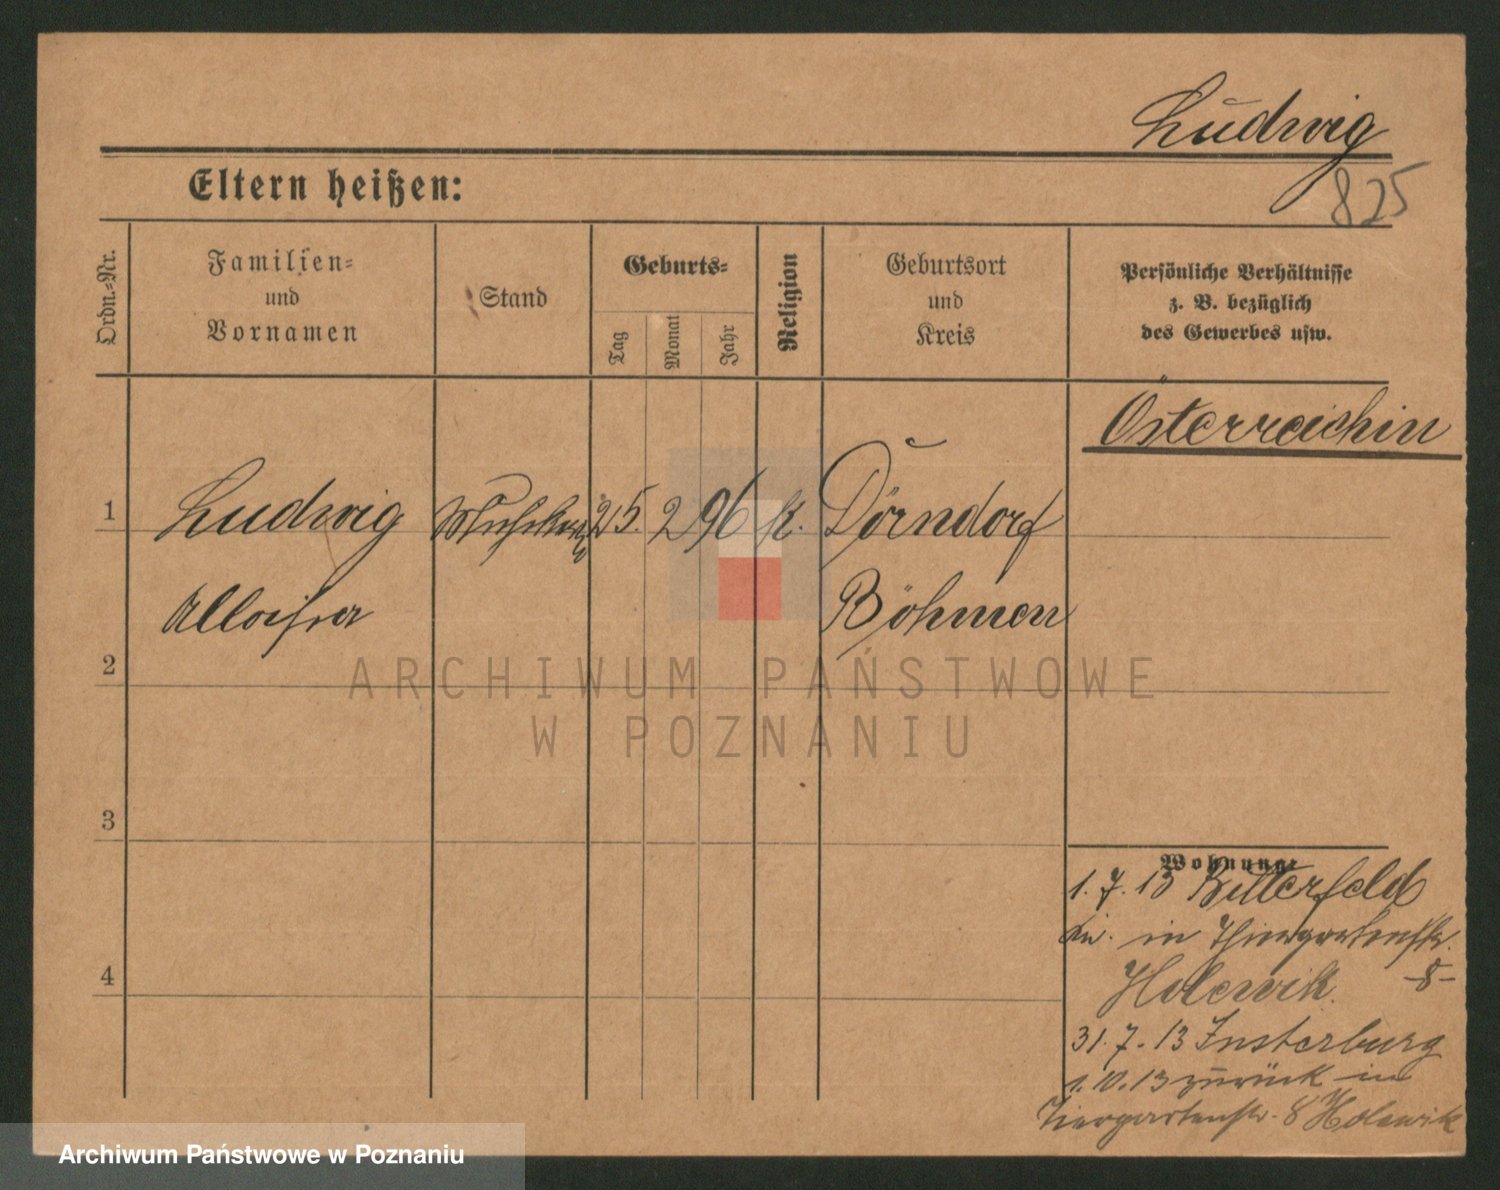 Ludwig
825
Eltern heißen:
Ordn.-Nr.
Familien-
und
Vornamen
Stand
Geburts-
Tag
Monat
Jahr
Religion
Geburtsort
und
Kreis
Persönliche Verhältnisse
z. B. bezüglich
des Gewerbes usw.
Österreichin
1
Ludwig
25. 2 96
k.
Dörndorf
Alloisia
Böhmen
2
ARCHIWUM PAŃSTWOWE
W POZNANIU
3
Wohnung:
1. 7. 13 Bitterfeld
in Thiergartenstr.
Holewik. -8-
4
31. 7. 13 Insterburg
1. 10. 13 zurück in
Tiergartenstr. 8 Holewik
Archiwum Państwowe w Poznaniu